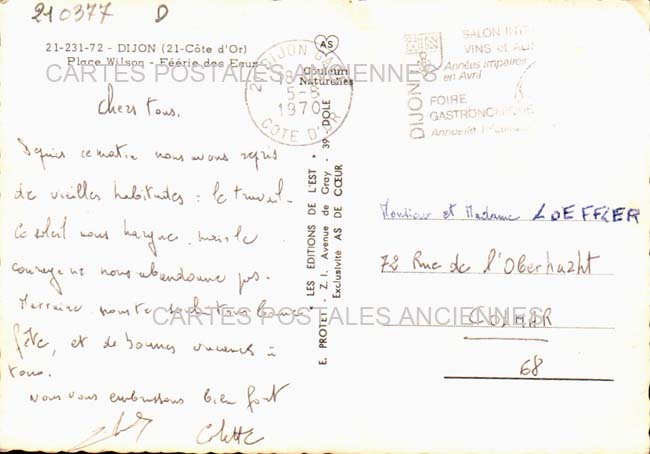 210377 D
21-231-72 - DIJON (21-Côte d'Or)
Place Wilson - Féérie des Eaux
CARTES POSTALES ANCIENNES
AS
Couleurs
Naturelles
21 DIJON GARE
18H
5-8
1970
COTE D'OR
DIJON
SALON INT
VINS et AL
Années impaires
en Avril
FOIRE
GASTRONOMIQUE
Annuelle
Chers tous,
Depuis ce matin nous avons repris
de vieilles habitudes : le travail.
Le soleil nous nargue, mais le
courage ne nous abandonne pas.
Marraine, nous te souhaitons bonne
fête, et de bonnes vacances à
tous.
Nous vous embrassons bien fort
Colette
* LES EDITIONS DE L'EST *
E. PROTET - Z. I. Avenue de Gray - 39 DOLE
Exclusivité AS DE CŒUR
Monsieur et Madame LOEFFLER
72 Rue de l'Oberhazht
CARTES POSTALES ANCIENNES
COLMAR
68